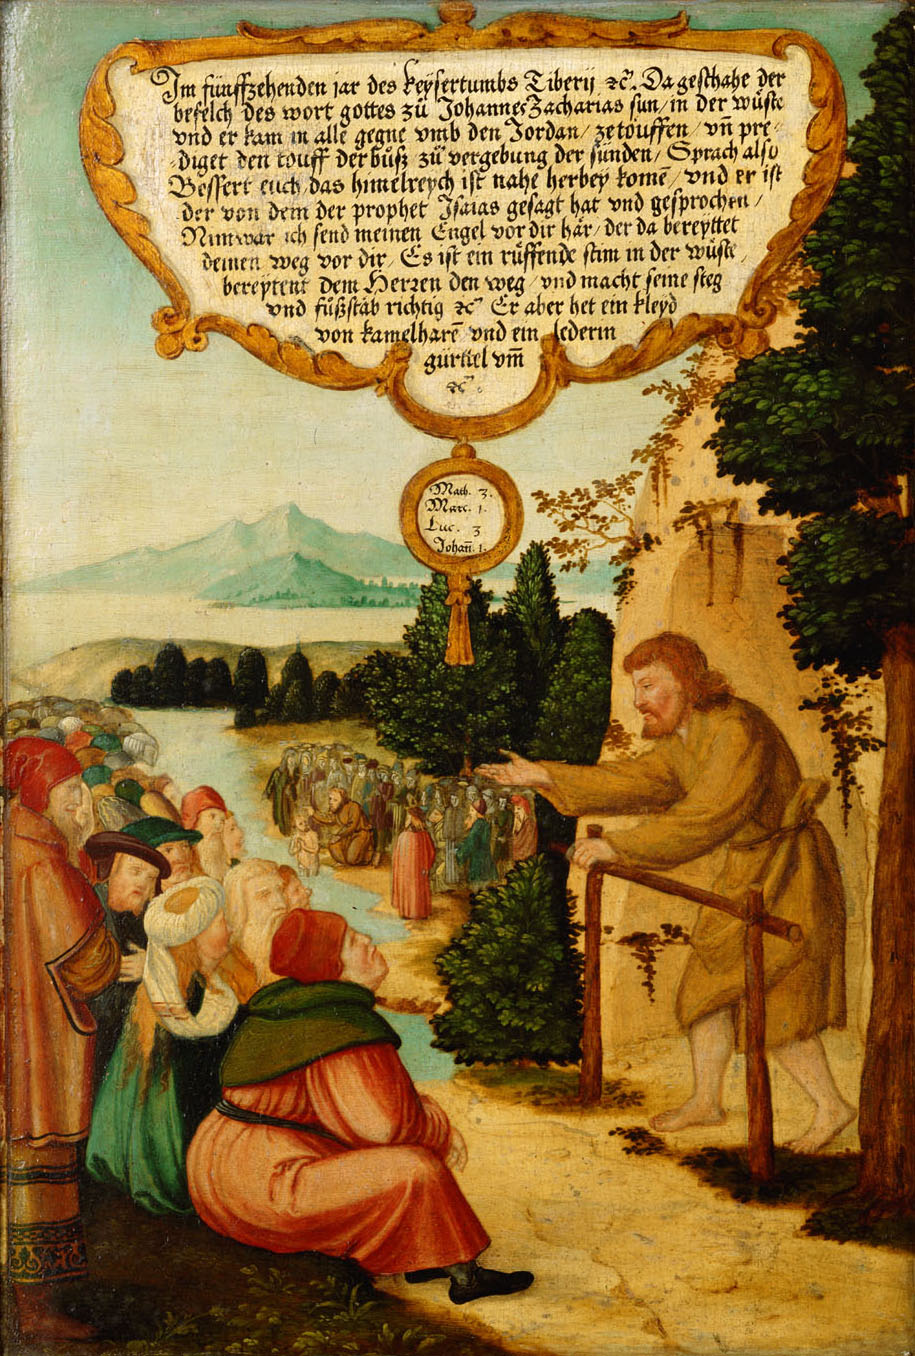 Im fünffzehenden jar des keysertumbs Tiberij ꝛc. Da geschahe der
befelch des wort gottes zů Johannes Zacharias sun / in der wůste
vnd er kam in alle gegne vmb den Jordan / ze touffen / vn̄ pre-
diget den touff der bůsz zů vergebung der sünden / Sprach also
Bessert euch / das himelreych ist nahe herbey komē / vnd er ist
der von dem der prophet Isaias gesagt hat vnd gesprochen /
Nim war ich send meinen Engel vor dir här / der da bereyttet
deinen weg vor dir / Es ist ein růffende stim in der wůste /
bereytent dem Herren den weg / vnd macht seine steg
vnd fůßstäb richtig ꝛc. Er aber het ein kleyd
von kamelharē vnd ein lederin
gürttel vm̄
ꝛc.
Math. 3.
Marc. 1.
Luc. 3
Johan̄. 1.